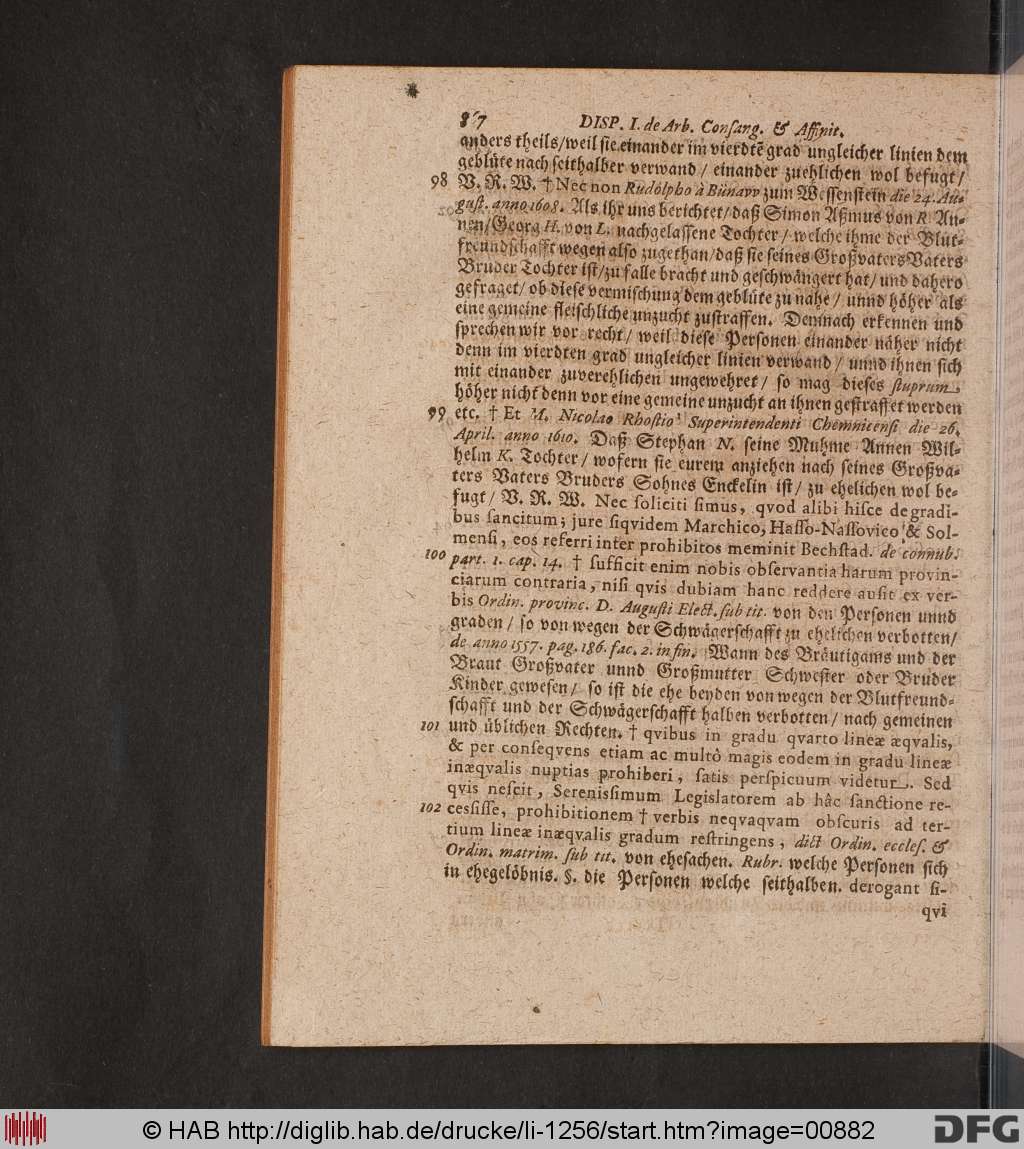 867 DISP. I. de Arb. Conſang. & Affinit.
anders theils/weil ſie einander im vierdtē grad ungleicher linien dem
geblüte nach ſeithalber verwand / einander zuehlichen wol befugt /
98 V. R. W. † Nec non Rudolpho à Bünavv zum Weſſenſtein die 24. Au-
guſt. anno 1608. Als ihr uns berichtet/ daß Simon Aßmus von R. An-
nen/Georg H. von L. nachgelaſſene Tochter / welche ihme der Blut-
freundſchafft wegen alſo zugethan/daß ſie ſeines Großvaters Vaters
Bruder Tochter iſt/zu falle bracht und geſchwängert hat/ und dahero
gefraget/ ob dieſe vermiſchung dem geblüte zu nahe / unnd höher als
eine gemeine fleiſchliche unzucht zuſtraffen. Demnach erkennen und
ſprechen wir vor recht/ weil dieſe Perſonen einander näher nicht
denn im vierdten grad ungleicher linien verwand / unnd ihnen ſich
mit einander zuverehlichen ungewehret / ſo mag dieſes ſtuprum
höher nicht denn vor eine gemeine unzucht an ihnen geſtraffet werden
99 etc. † Et M. Nicolao Rhoſtio Superintendenti Chemnicenſi die 26.
April. anno 1610. Daß Stephan N. ſeine Muhme Annen Wil-
helm K. Tochter / wofern ſie eurem anziehen nach ſeines Großva-
ters Vaters Bruders Sohnes Enckelin iſt/ zu ehelichen wol be-
fugt / V. R. W. Nec ſoliciti ſimus, qvod alibi hiſce de gradi-
bus ſancitum; jure ſiqvidem Marchico, Haſſo-Naſſovico & Sol-
menſi, eos referri inter prohibitos meminit Bechſtad. de connub.
100 part. 1. cap. 14. † ſufficit enim nobis obſervantia harum provin-
ciarum contraria, niſi qvis dubiam hanc reddere auſit ex ver-
bis Ordin. provinc. D. Auguſti Elect. ſub tit. von den Perſonen unnd
graden / ſo von wegen der Schwägerſchafft zu ehelichen verbotten/
de anno 1557. pag. 186. fac. 2. in fin. Wann des Bräutigams und der
Braut Großvater unnd Großmutter Schweſter oder Bruder
Kinder geweſen / ſo iſt die ehe beyden von wegen der Blutfreund-
ſchafft und der Schwägerſchafft halben verbotten / nach gemeinen
101 und üblichen Rechten. † qvibus in gradu qvarto lineæ æqvalis,
& per conſeqvens etiam ac multò magis eodem in gradu lineæ
inæqvalis nuptias prohiberi, ſatis perſpicuum videtur. Sed
qvis neſcit, Sereniſſimum Legislatorem ab hâc ſanctione re-
102 ceſſiſſe, prohibitionem † verbis neqvaqvam obſcuris ad ter-
tium lineæ inæqvalis gradum reſtringens, dict Ordin. eccleſ. &
Ordin. matrim. ſub tit. von eheſachen. Rubr. welche Perſonen ſich
in ehegelöbnis. §. die Perſonen welche ſeithalben. derogant ſi-
qvi
© HAB http://diglib.hab.de/drucke/li-1256/start.htm?image=00882
DFG